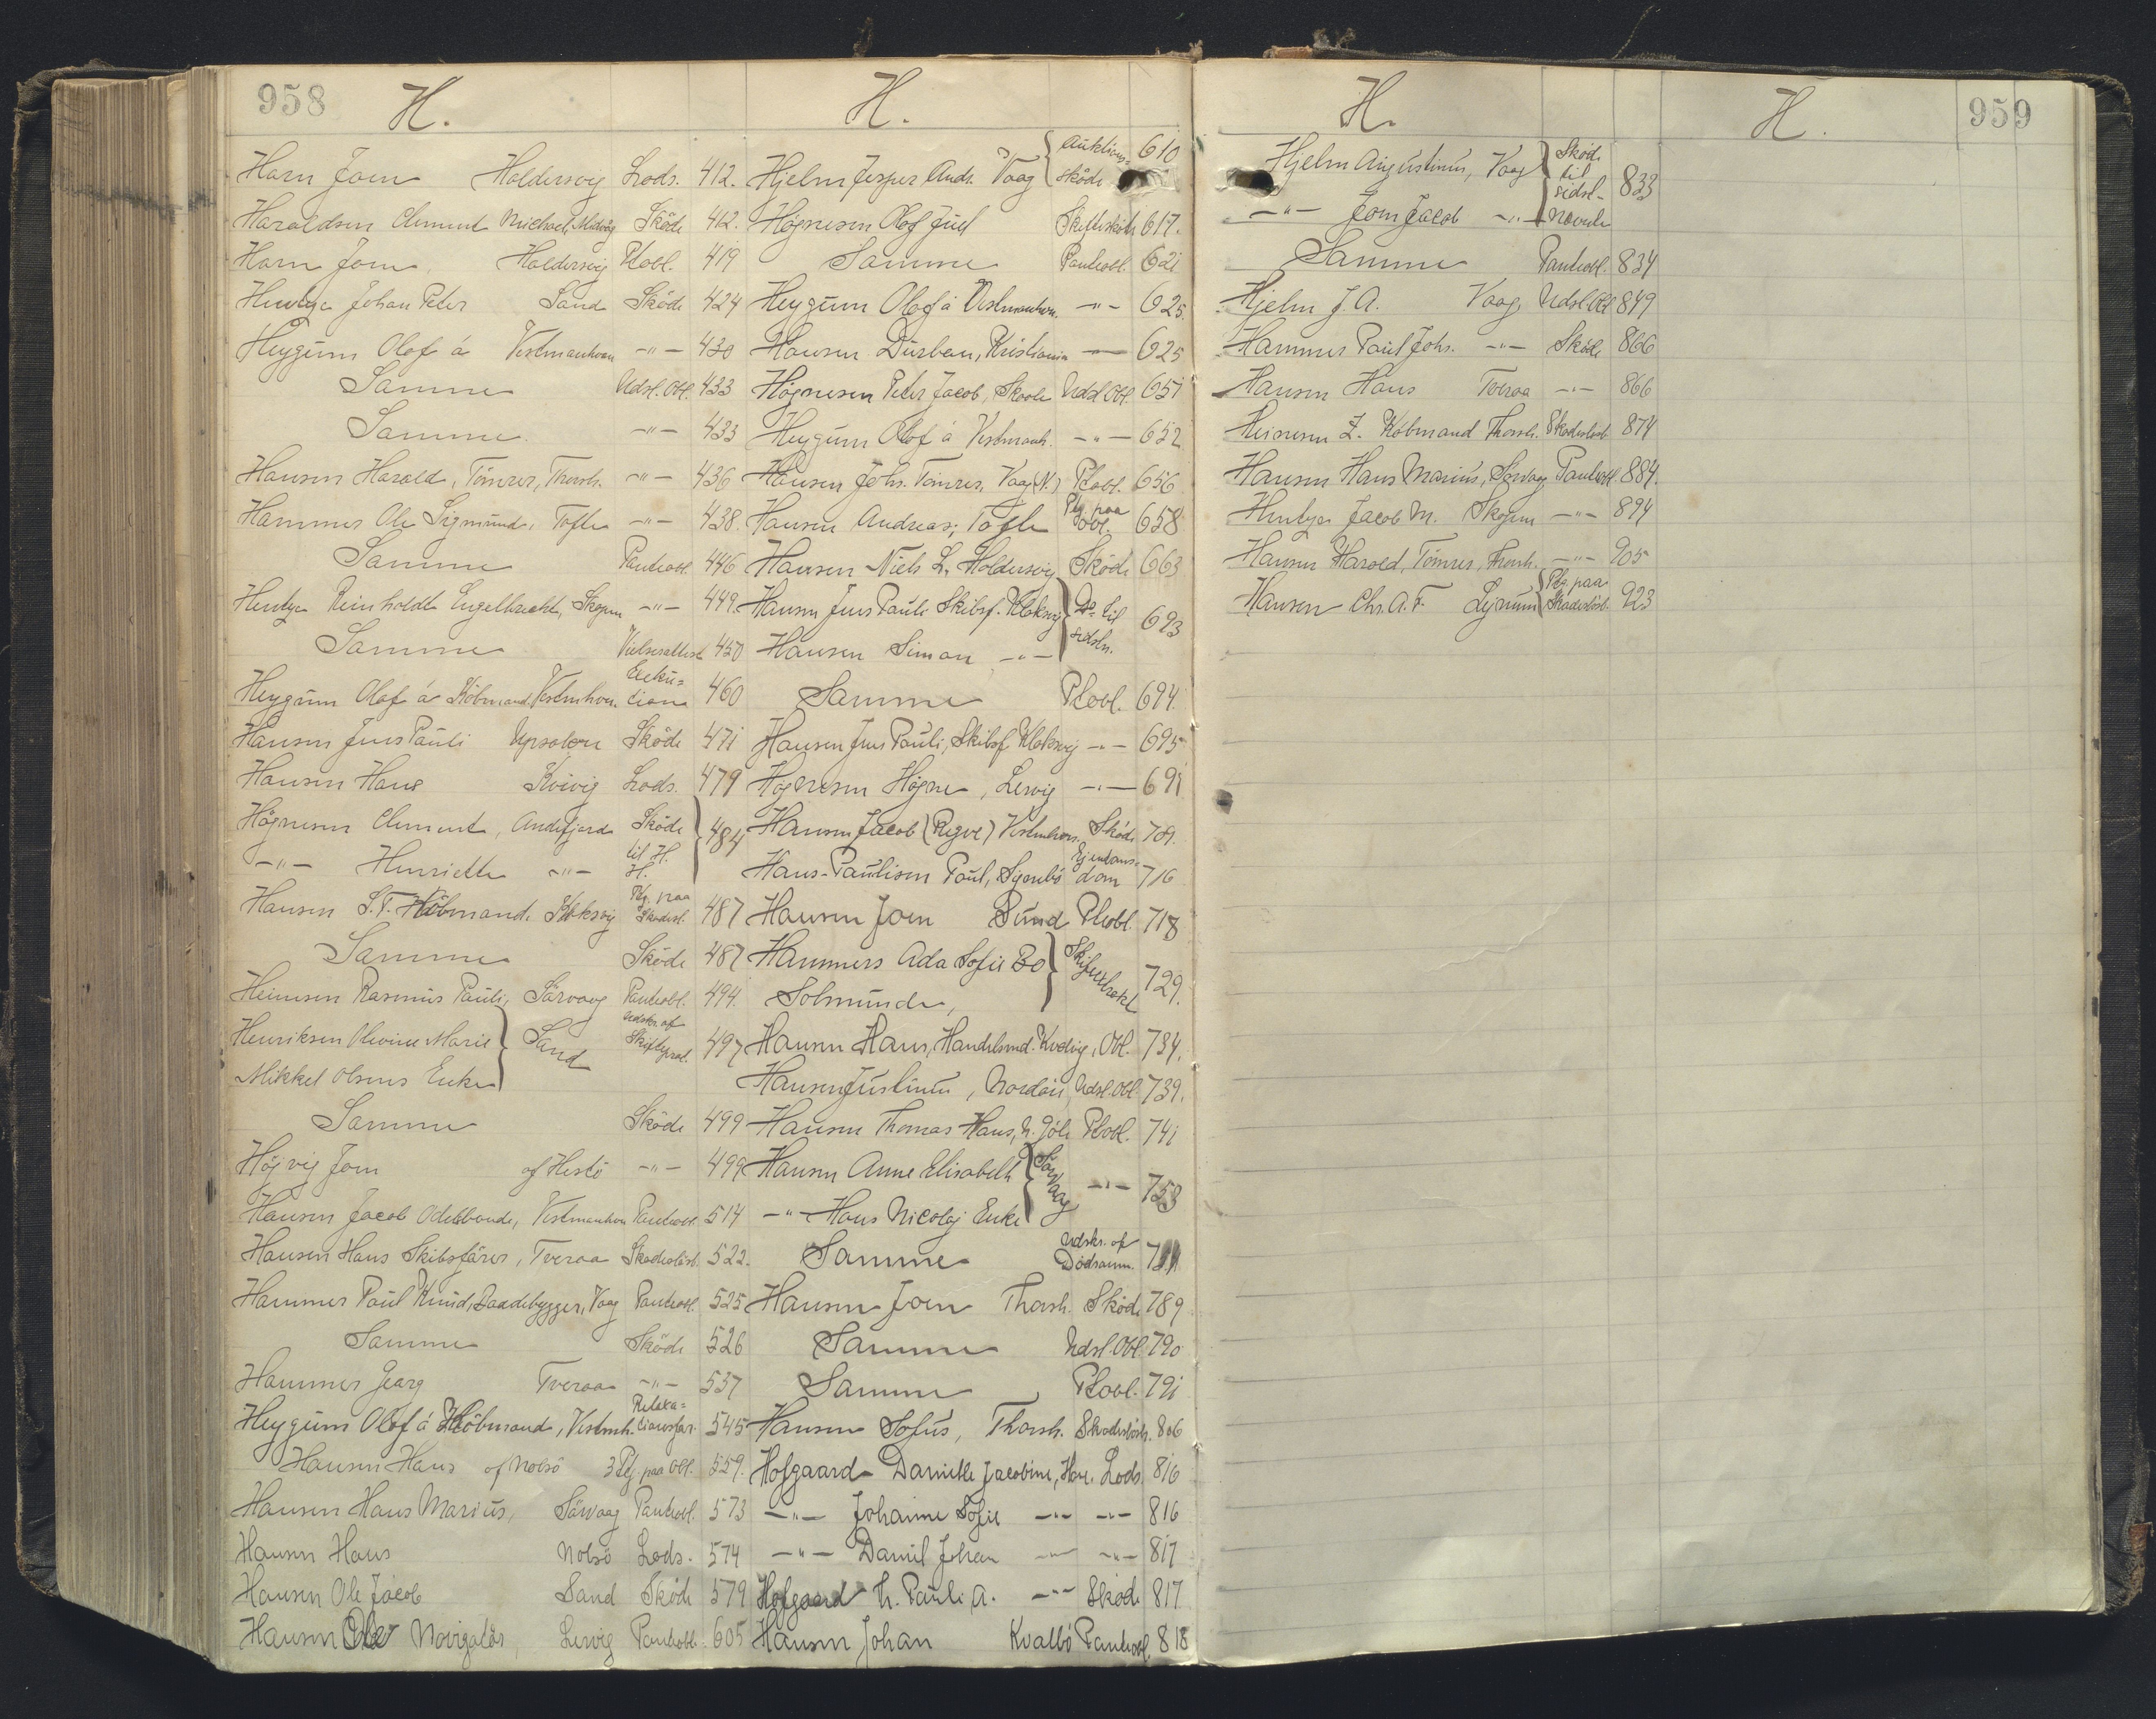 958 H. H.
Harn Joen Haldersvig Lods. 412.
Haraldsen Clement Michael, Midvåg Sköde 412.
Harn Joen, Haldersvig Ptobl. 419
Hentze Johan Peter Sand Sköde 424
Heygum Olof á Vestmanhavn -"- 430
Samme Udsl. Obl. 433
Samme -"- 433
Hansen Harald, Tömrer, Thorsh. -"- 436
Hammer Ole Sigmund, Tofte -"- 438.
Samme Panteobl. 446
Hentze Reinholdt Engelbrecht, Skopun -"- 449.
Samme Vielsesattest 450
Heygum Olof á Köbmand. Vestmhvn. Exeku=tions 460
Hansen Jens Pauli Uprsalen Sköde 471
Hansen Hans Kvivig Lods. 479
Högnesen Clement, Andefjord Sköde
-"- Henriette -"- til H. H. } 484
Hansen S.F. Köbmand, Klaksvig Ptg. paa Skadesl. 487
Samme Sköde 487
Heinesen Rasmus Pauli, Sörvaag Panteobl. 494.
Henriksen Olevine Marie } Sand Udskr. af Skifteprot. 497
Mikkel Olsens Enke
Samme Sköde 499
Höjvig Joen af Hestö -"- 499
Hansen Jacob Odelsbonde, Vestmanhvn Panteobl. 514
Hansen Hans Skibsförer, Tveraa Skadeslösb. 522.
Hammer Poul Knud, Baadebygger, Vaag Panteobl. 525
Samme Sköde 526
Hammer Georg Tveraa -"- 537
Heygum Olof á Köbmand, Vestmh. Relaxa=tionsfor. 545
Hansen Hans af Nolsö 3 Ptg. paa Obl. 559.
Hansen Hans Marius, Sörvaag Panteobl. 573
Hansen Hans Nolsö Lods. 574
Hansen Ole Jacob Sand Sköde 579
Hansen Ole Navigatör, Lervig Panteobl. 605
Hjelm Jesper Andr. Vaag { Auktions=sköde 610
Högnesen Olof Juul Skifteskøde 617.
Samme Panteobl. 621
Heygum Olof á Vestmanhvn. -"- 625.
Hansen Durban, Kristiania -"- 625
Högnesen Peter Jacob, Skaale Udsl Obl. 651
Heygum Olof á Vestmanh. -"- 652
Hansen Joh. Tömrer, Vaag (N.) Ptobl. 656
Hansen Andreas, Tofte Ptg. paa Obl. 658
Hansen Niels L. Haldersvig Sköde 663
Hansen Jens Pauli Skibsf. Klaksvig } Do til sidstn. 693
Hansen Simon -"-
Samme Ptobl. 694.
Hansen Jens Pauli, Skibsf. Klaksvig -"- 695
Högnesen Högne, Lervig -"- 691
Hansen Jacob (Regve) Vestmhvn. Sköde 701.
Hans-Paulisen Poul, Syenbö Ejendoms=dom 716
Hansen Joen Sund Ptobl. 718
Hammers Ada Sofie Bo } Skifteextrakt 729.
Solmunde,
Hansen Hans, Handelsmd. Kvivig, Obl. 734.
Hansen Justinus, Nordöii, Udsl. Obl. 739.
Hansen Thomas Hans, N. Göte Ptobl. 741
Hansen Anne Elisabeth { Sörvaag -"- 753
-"- Hans Nicolaj Enke
Samme Udskr. af Dödsanm.
Hansen Joen Thorsh. Sköde 789
Samme Udsl. Obl. 790
Samme Ptobl. 791
Hansen Sofus, Thorsh. Skadeslösb. 806
Hofgaard Danielle Jacobine, Hov. Lods. 816
-"- Johanne Sofie -"- -"- 816
-"- Daniel Johan -"- -"- 817
Hofgaard H. Pauli A. -"- Sköde 817
Hansen Johan Kvalbö Panteobl. 818
H. H. 959
Hjelm Augustinus, Vaag } Sköde til sidst-nævnte 833
-"- Joen Jacob -"-
Samme Panteobl. 834
Hjelm J. A. Vaag, Udsl Obl 849
Hammer Poul Johs. -"- Sköde 866
Hansen Hans Tveraa -"- 866
Heinesen Z. Köbmand Thorsh. Skadeslösb. 874
Hansen Hans Marius, Sörvaag Panteobl. 884.
Hentze Jacob M. Skopun -"- 894
Hansen Harald, Tömrer, Thorsh. -"- 905
Hansen Chr. A. F. Lynum { Ptg. paa Skadeslösb. 923